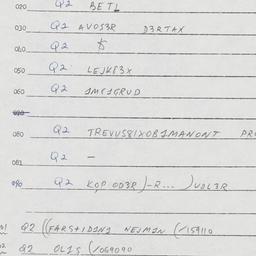 020 Q2 BETL
030 Q2 AVOS3R D3RTAX
040 Q2
050 Q2 LEJK83X
060 Q2 1MC1GRUD
080 Q2 TREVUS8IXOB1MANONT PR
081 Q2 —
090 Q2 KOP OD3R)-R...)UDL3R
Q2 ((FARS+ID1N1 NEJM1N (/159110
Q2 OL1S (/069090